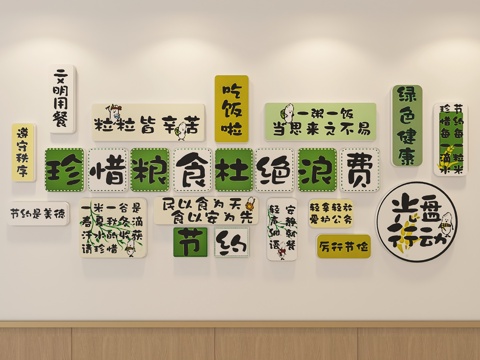 文明用餐
粒粒皆辛苦
吃饭啦
一粥一饭
当思来之不易
绿色健康
节约每一粒米
珍惜每一滴水
遵守秩序
珍惜粮食杜绝浪费
节约是美德
一米一谷是
一春夏秋冬滴
汗水的收获
请珍惜
民以食为天
食以安为先
节约
安静就餐
轻来细语
轻拿轻放
爱护公务
厉行节俭
光盘
行动